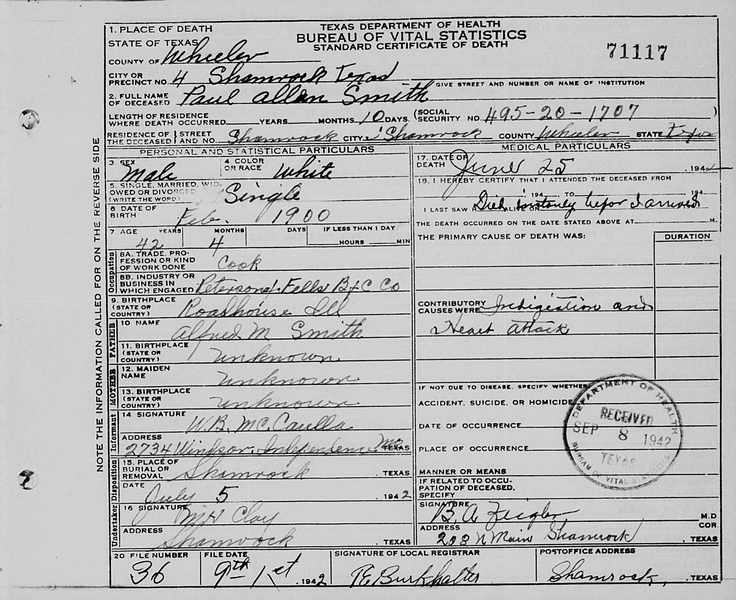 TEXAS DEPARTMENT OF HEALTH
BUREAU OF VITAL STATISTICS
STANDARD CERTIFICATE OF DEATH
71117
1. PLACE OF DEATH
STATE OF TEXAS
COUNTY OF Wheeler
CITY OR PRECINCT NO. 4 Shamrock Texas GIVE STREET AND NUMBER OR NAME OF INSTITUTION
2. FULL NAME OF DECEASED Paul Allen Smith
LENGTH OF RESIDENCE WHERE DEATH OCCURRED YEARS MONTHS 10 DAYS (SOCIAL SECURITY NO. 495-20-1707
RESIDENCE OF THE DECEASED STREET AND NO. Shamrock CITY Shamrock COUNTY Wheeler STATE Texas
PERSONAL AND STATISTICAL PARTICULARS
3. SEX Male 4. COLOR OR RACE White
5. SINGLE, MARRIED, WIDOWED OR DIVORCED (WRITE THE WORD) Single
6 DATE OF BIRTH Feb. 1900
7. AGE YEARS MONTHS DAYS IF LESS THAN 1 DAY
42 4 HOURS MIN
8A. TRADE, PROFESSION OR KIND OF WORK DONE Cook
8B. INDUSTRY OR BUSINESS IN WHICH ENGAGED Peterson & Fells B & C Co
9. BIRTHPLACE (STATE OR COUNTRY) Roadhouse Ill
10 NAME Alfred M Smith
11. BIRTHPLACE (STATE OR COUNTRY) unknown
12. MAIDEN NAME unknown
13. BIRTHPLACE (STATE OR COUNTRY) unknown
14 SIGNATURE W.B. Mc
ADDRESS 2734 Windsor, Independence Mo TEXAS
15. PLACE OF BURIAL OR REMOVAL Shamrock, TEXAS
DATE July 5 1942
16 SIGNATURE MH Clay
ADDRESS Shamrock, TEXAS
MEDICAL PARTICULARS
17. DATE OF DEATH June 25, 194
18. I HEREBY CERTIFY THAT I ATTENDED THE DECEASED FROM
194 TO 194
I LAST SAW H ALIVE ON Died before I arrived
THE DEATH OCCURRED ON THE DATE STATED ABOVE AT M.
THE PRIMARY CAUSE OF DEATH WAS: DURATION
CONTRIBUTORY CAUSES WERE Indigestion and
Heart attack
IF NOT DUE TO DISEASE, SPECIFY WHETHER
ACCIDENT, SUICIDE, OR HOMICIDE
DATE OF OCCURRENCE
PLACE OF OCCURRENCE
MANNER OR MEANS
IF RELATED TO OCCUPATION OF DECEASED, SPECIFY
SIGNATURE B. A. Zeigler M.D COR.
ADDRESS 203 N Main Shamrock, TEXAS
DEPARTMENT OF HEALTH
RECEIVED
SEP 8 1942
TEXAS
BUREAU OF VITAL STATISTICS
20 FILE NUMBER FILE DATE SIGNATURE OF LOCAL REGISTRAR POSTOFFICE ADDRESS
36 9th 1st 1942 Burkhalter Shamrock, TEXAS
NOTE THE INFORMATION CALLED FOR ON THE REVERSE SIDE
Occupation
FATHER
MOTHER
Informant
Disposition
Undertaker